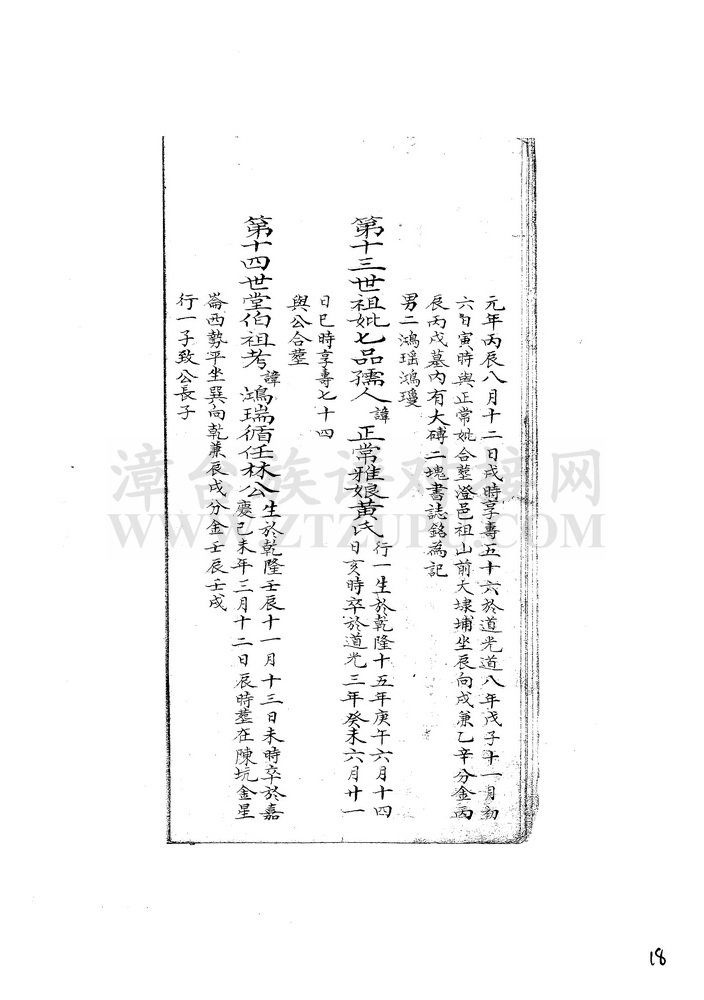 元年丙辰八月十二日戌時享壽五十六於道光八年戊子十一月初
六日寅時與正常妣合塟澄邑祖山前大埭埔坐辰向戌兼乙辛分金丙
辰丙戌墓內有大磚二塊書誌銘為記
男二鴻瑶鴻瓊
第十三世祖妣七品孺人諱正常雅娘黃氏行一生於乾隆十五年庚午六月十四
日亥時卒於道光三年癸未六月廿一
日巳時享壽七十四
與公合塟
第十四世堂伯祖考諱鴻瑞循任林公生於乾隆壬辰十一月十三日未時卒於嘉
慶己未年三月十二日辰時塟在陳坑金星
崙西勢平坐巽向乾兼辰戌分金壬辰壬戌
行一子致公長子
漳台族谱对接网
WWW.ZTZUPU.COM
18